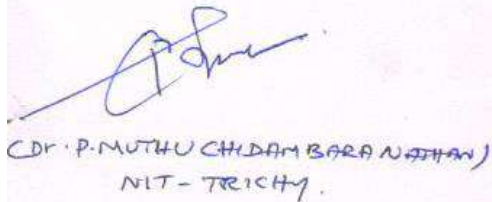 (Dr. P. MUTHU CHIDAMBARA NATHAN)
NIT - TRICHY.